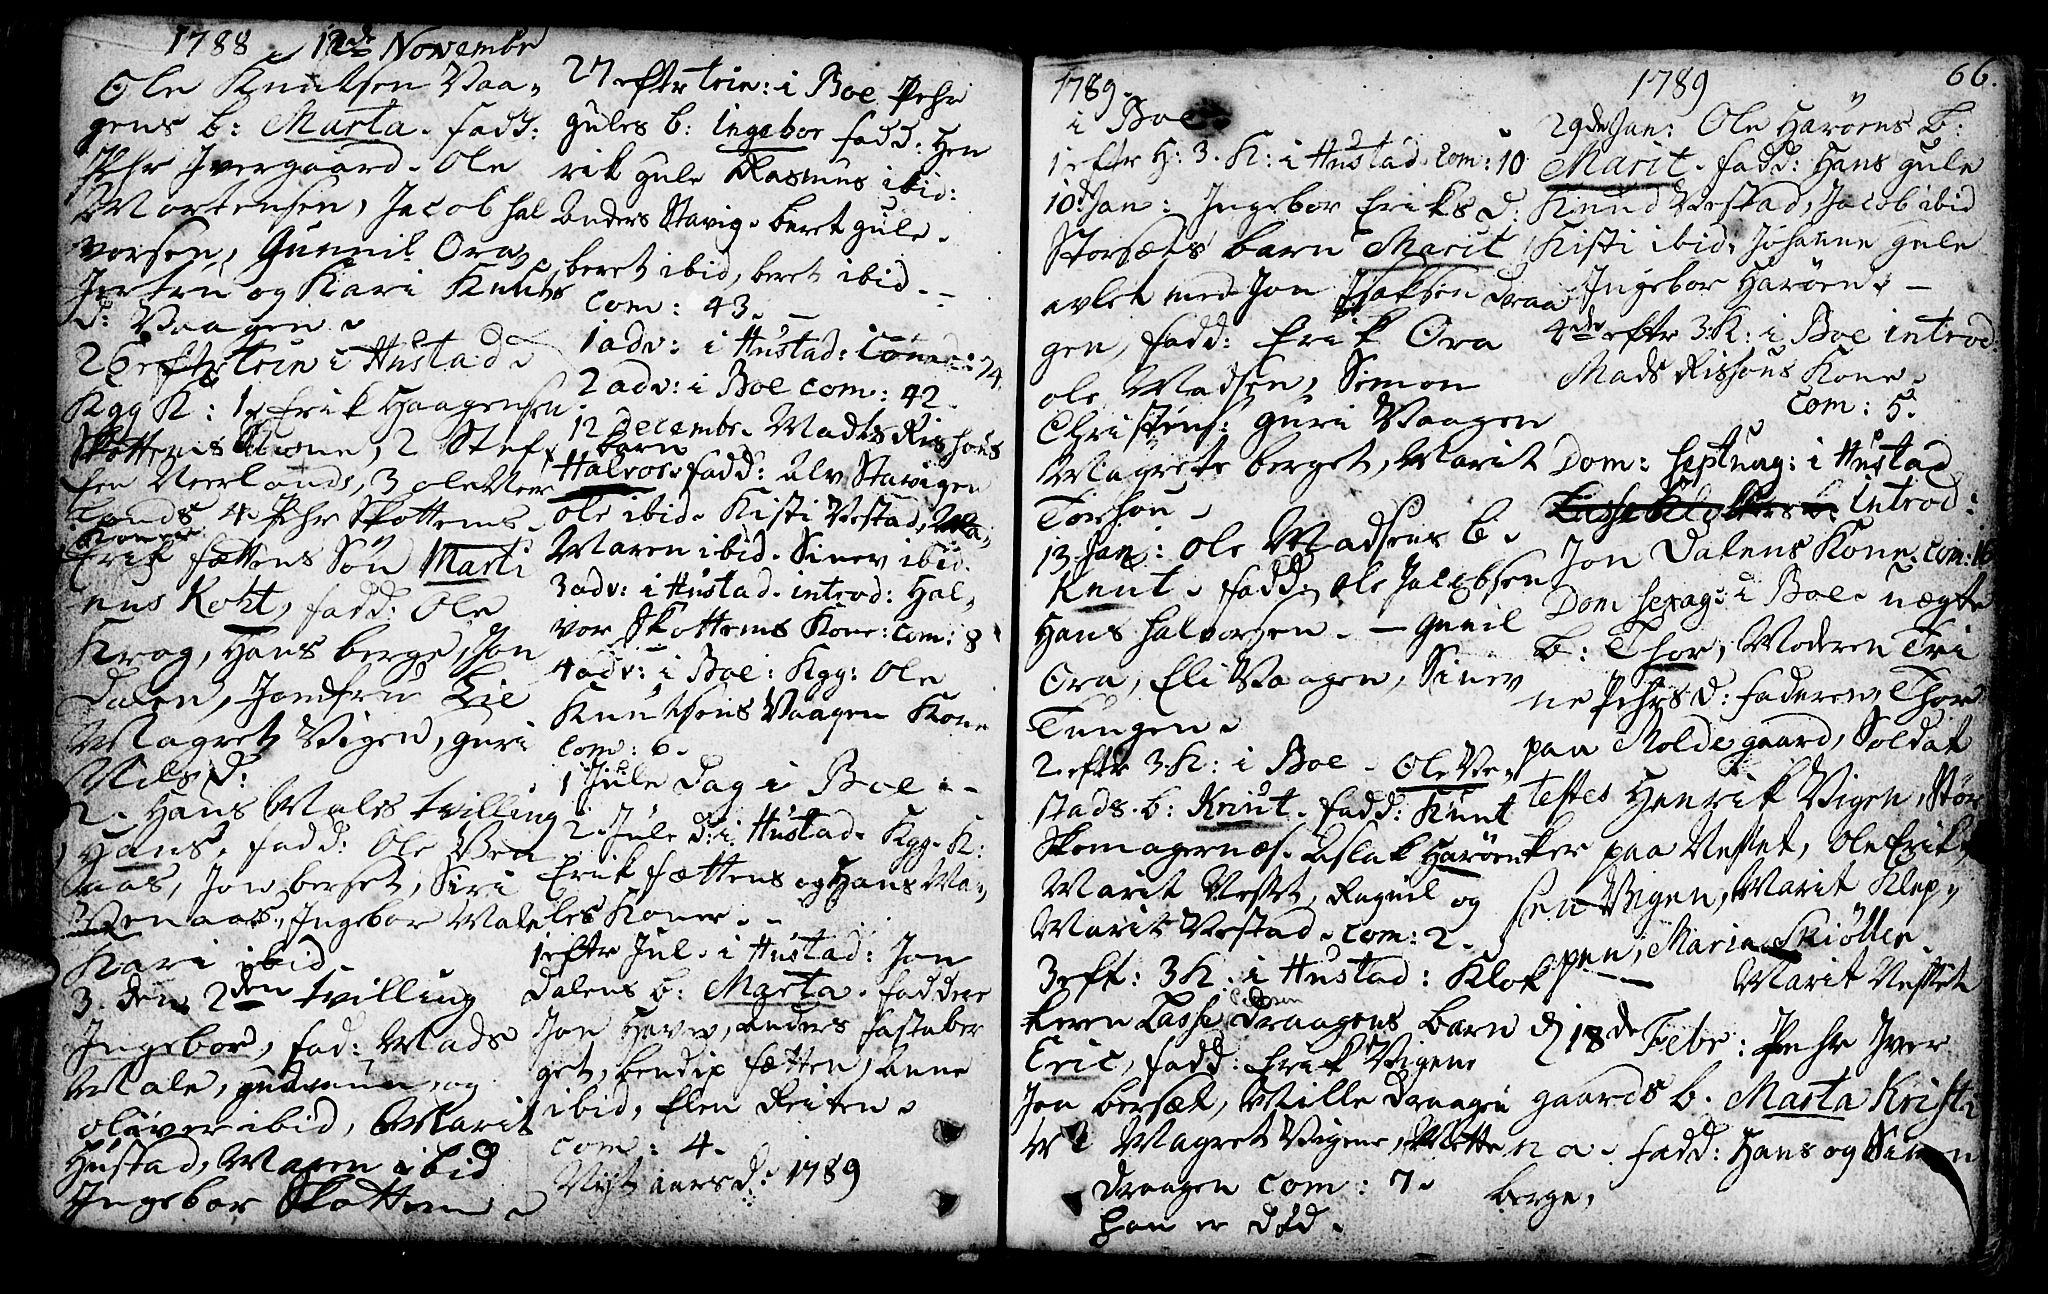 1788 12de Novembr
Ole Knutsen Vaa„
gens b: Marta. fadd:
Pehr Ivergaard. Ole
Mortensen, Jacob hal
vorsen, Gunnil Ora,
og Kari Knuts
d: Vaagen.
26 eftr trin i Hustad.
Kgg K: 1 Erik Haagensen
Skottems Kone, 2 Stef
fen Neerlands, 3 ole Neer
lands 4 Pehr Skottems.
Koner
Erik fættens Søn Marti
nus Koht, fadd: Ole
Krog, Hans berge, Jon
Dalen, Jomfru Lie
Magret Vigen, guri
Nils d:
2. Hans Males tvilling
Hans, fadd: Ole Ven
aas, Jon berset, Siri
Venaas, Ingebor Male
Kari ibid
3. den 2den tvilling
Ingebor, fad: Mads
Male, gudmun og
oliver ibid, Marit
Hustad, Maren ibid
Ingebor Skottem.
27 eftr trin: i Boe Pehr
gules b: Ingebor fadd: Hen
rik gule Rasmus ibid:
Anders Stavig. beret gule.
beret ibid, beret ibid.
com: 43.
1 adv: i Hustad: com: 74.
2 adv: i Boe com: 42
12 Decembr. Mads Rishous
barn
Halvor. fadd: Alv Stavigen
ole ibid. Kisti Vestad,
Maren ibid. Sinev ibid.
3 adv: i Hustad. introd: Hal„
vor Skottems Kone: com: 8
4 adv: i Boe: Kgg: Ole
Knutsens Vaagen Kone
com: 6.
1 Jule Dag i Boe.
2. Jule d: i Hustad. Kgg. K:
Erik fættens og Hans Ma„
les Koner.
1 eftr Jul. i Hustad: Jon
Dalens b: Marta. faddere
Jon Havn, anders fastaber
get, bendix fætten, anne
ibid, Elen Reiten.
com: 4.
Nyt aars d: 1789
1789.
i Boe
1 eftr H: 3. K: i Hustad. com: 10
10d Jan: Ingebor Eriks d:
Storsæts barn Marit
avlet med Jon Isaksen Draa
gen, fadd: Erik Ora
ole Madsen, Simon
Christens: guri Vaagen
Magrete berget, Marit
Torhou.
13 Jan: Ole Madsens b.
Knut. fadd: Ole Jacobsen
Hans halvorsen. Gunil
Ora, Eli Vaagen, Sinev
Tungen.
2. eftr 3. K: i Boe. Ole Ve„
stads. b: Knut. fadd: Knut
Skomagernæs. Aslak Harøen
Marit Nesset, Ragnil og
Marit Vestad. com: 2.
3 eft: 3 K. i Hustad: Klok
keren Lasse Pedersen Draagens barn
Eric, fadd: Erik Vigene
Jon bersæt, Mille Draagen
Magret Vigene, Mette
Draagen com: 7.
han er død.
1789 66.
29de Jan: Ole Harøens b:
Marit. fadd: Hans gule
Knud Vestad, Jacob ibid
Kisti ibid, Johanne gule
Ingebor Harøen.
4de eftr 3. K: i Boe introd:
Mads Rishous Kone.
com: 5.
Dom: septuag: i Hustad
introd:
Jon Dalens Kone: com: 16
Dom sexag: i Boe. uægte
b: Thor, Moderen Tri
ne Pehrs d: faderen, Thor
paa Moldegaard, Soldat
testes Henrik Vigen, Stør
ker paa Nesset, Ole Erik
sen Vigen, Marit Klep„
pen, Maria Skiøller.
Marit Nesset
d 18de Febr: Pehr Iver
gaards b. Marta Kristi
na. fadd: Hans og Siren
berge,